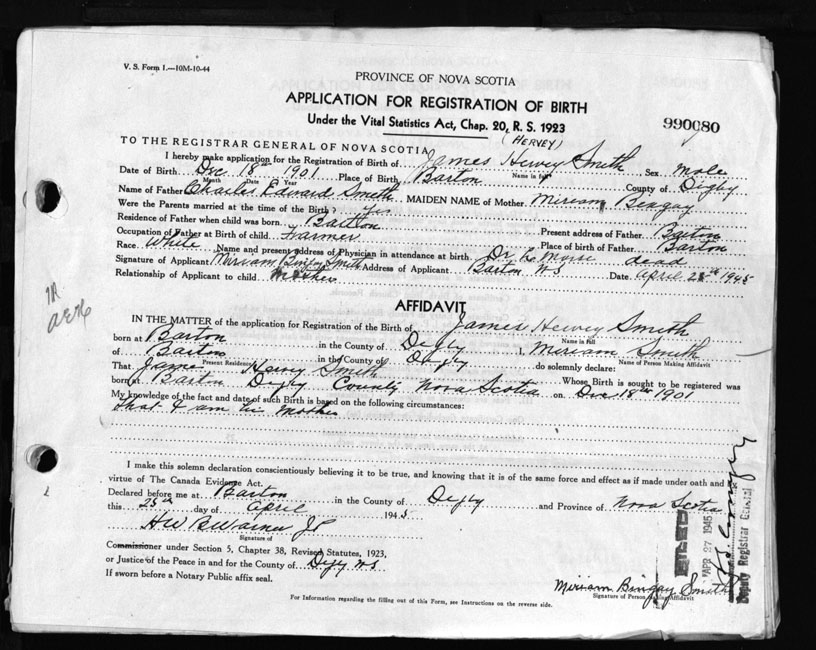 V. S. Form 1.—10M-10-44
PROVINCE OF NOVA SCOTIA
APPLICATION FOR REGISTRATION OF BIRTH
Under the Vital Statistics Act, Chap. 20, R. S. 1923
990080
(HERVEY)
TO THE REGISTRAR GENERAL OF NOVA SCOTIA
I hereby make application for the Registration of Birth of James Hervey Smith Sex Male
Name in full
Date of Birth Dec 18th 1901 Place of Birth Barton County of Digby
Month Date Year
Name of Father Charles Edward Smith MAIDEN NAME of Mother Miriam Bengay
Were the Parents married at the time of the Birth? Yes
Residence of Father when child was born Barton Present address of Father Barton
Occupation of Father at Birth of child Farmer Place of birth of Father Barton
Race White Name and present address of Physician in attendance at birth Dr Morse dead
Signature of Applicant Miriam Bingay Smith Address of Applicant Barton NS Date April 25th 1945
Relationship of Applicant to child Mother
AFFIDAVIT
IN THE MATTER of the application for Registration of the Birth of James Hervey Smith
Name in full
born at Barton in the County of Digby I, Miriam Smith
Name of Person Making Affidavit
of Barton in the County of Digby do solemnly declare:
Present Residence
That James Hervey Smith Whose Birth is sought to be registered was
born at Barton Digby County Nova Scotia on Dec 18th 1901
My knowledge of the fact and date of such Birth is based on the following circumstances:
that I am his mother
I make this solemn declaration conscientiously believing it to be true, and knowing that it is of the same force and effect as if made under oath and by
virtue of The Canada Evidence Act.
Declared before me at Barton in the County of Digby and Province of Nova Scotia
this 25th day of April 1945
H W B Warner JP
Signature of
Commissioner under Section 5, Chapter 38, Revised Statutes, 1923,
or Justice of the Peace in and for the County of Digby NS
If sworn before a Notary Public affix seal.
Miriam Bingay Smith
Signature of Person Making Affidavit
FILED
APR 27 1945
Deputy Registrar General
For Information regarding the filling out of this Form, see Instructions on the reverse side.